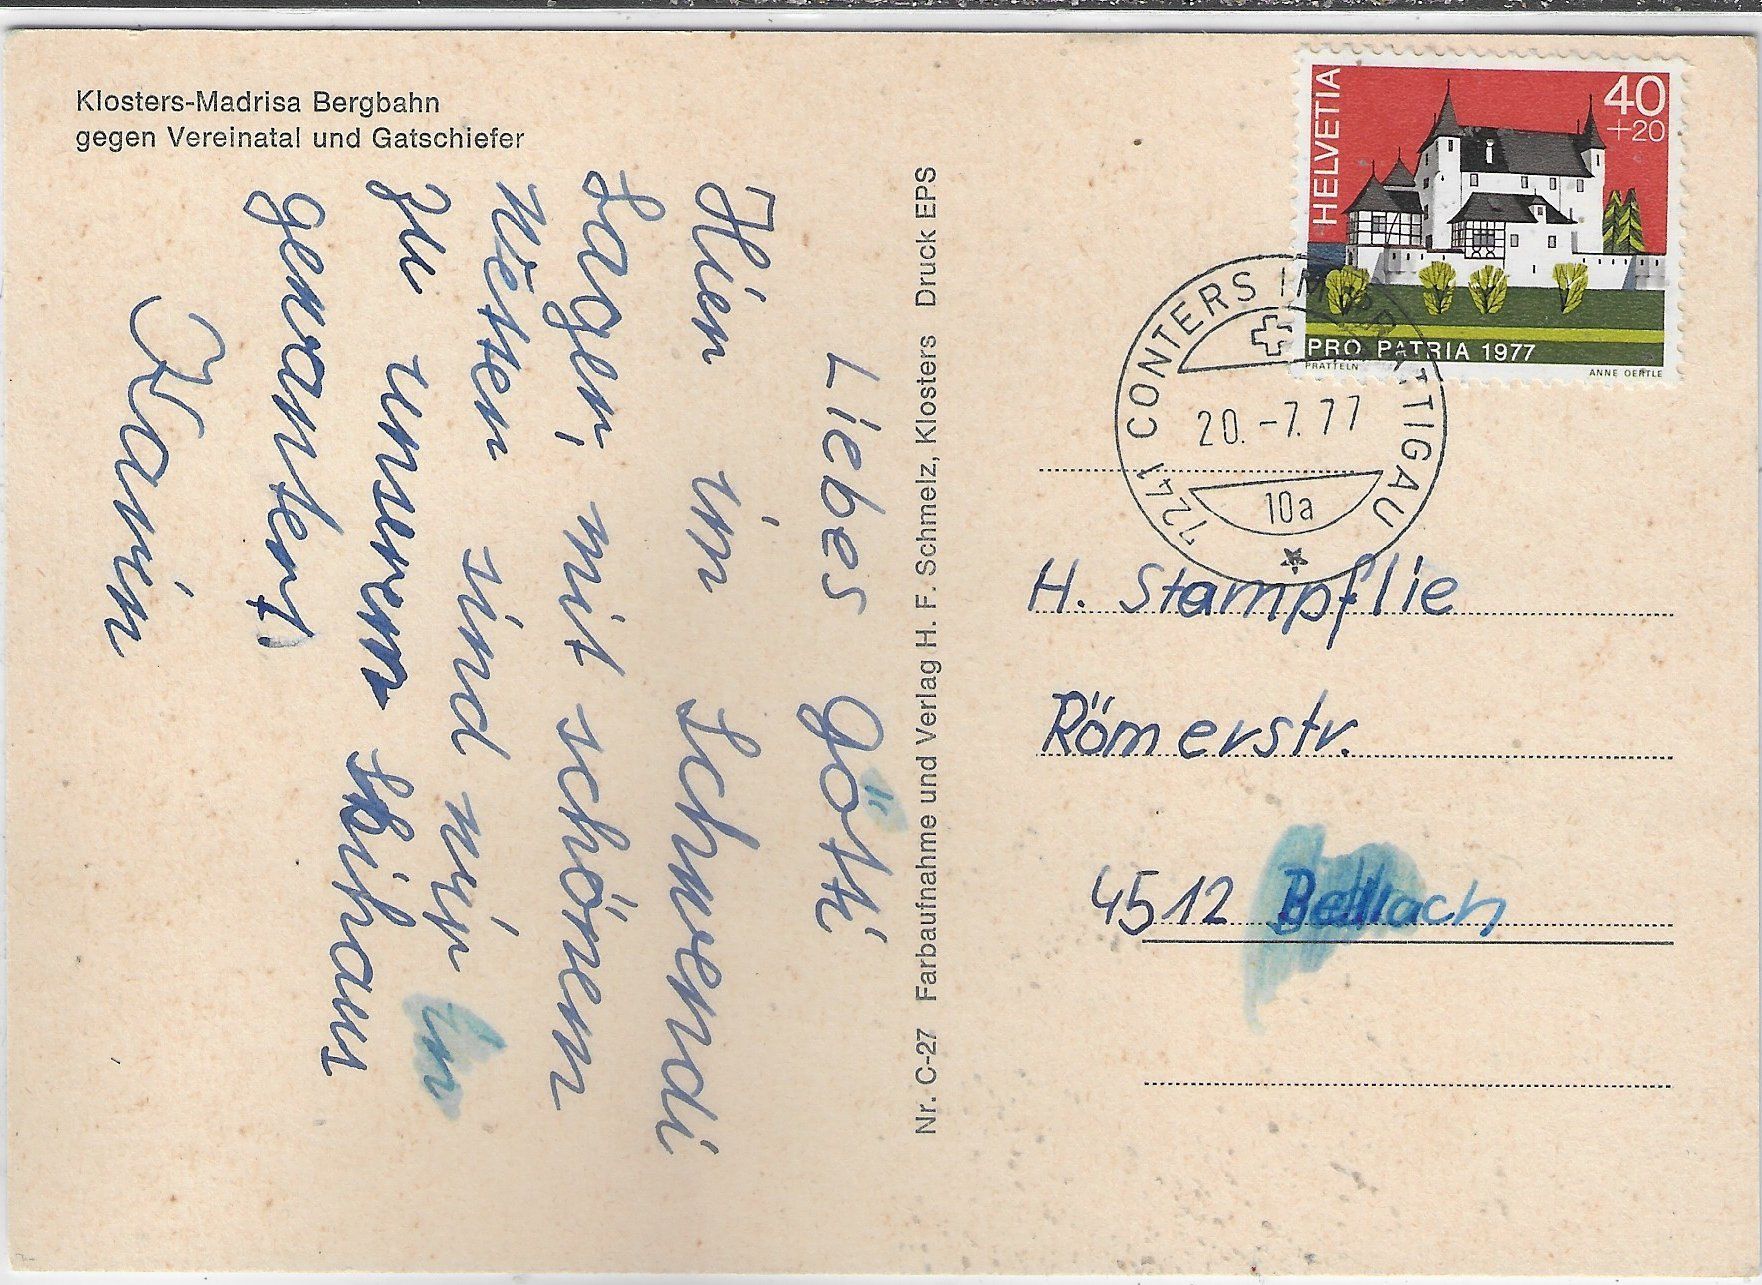 Klosters-Madrisa Bergbahn
gegen Vereinatal und Gatschiefer
Liebes Götti
Hier im Schwendi
Lager, mit schönem
Wetter sind wir in
zu unserm Skihaus
gewantert.
Karin
Nr. C-27 Farbaufnahme und Verlag H. F. Schmelz, Klosters Druck EPS
HELVETIA
40
+20
PRO PATRIA 1977
PRATTELN
ANNE OERTLE
7241 CONTERS IM PRÄTTIGAU
20.-7.77
10a
H. Stampflie
Römerstr.
4512 Bellach